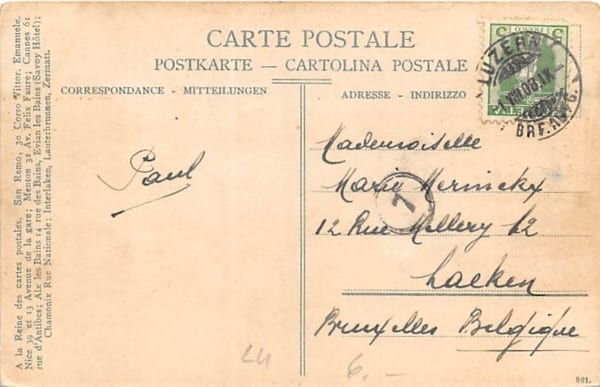 CARTE POSTALE
POSTKARTE — CARTOLINA POSTALE
CORRESPONDANCE - MITTEILUNGEN
ADRESSE - INDIRIZZO
A la Reine des cartes postales. San Remo, 30 Corso Vittor. Emanuele.
Nice 39 et 13 Avenue de la gare; Menton 32 Av. Felix Faure; Cannes 61
rue d'Antibes; Aix les Bains 14 rue des Bains, Evian les Bains (Savoy Hôtel);
Chamonix Rue Nationale; Interlaken, Lauterbrunnen, Zermatt.
Paul
LUZERN
BRF.AUFG.
7
Mademoiselle
Marie Merinckx
12 Rue Mellery 12
Laeken
Bruxelles Belgique
6.-
801.